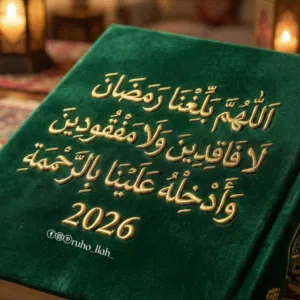 اَللّٰهُمَّ بَلِّغْنَا رَمَضَانَ
لَا فَاقِدِينَ وَلَا مَفْقُودِينَ
وَأَدْخِلْهُ عَلَيْنَا بِالرَّحْمَةِ
2026
@ruho_llah_